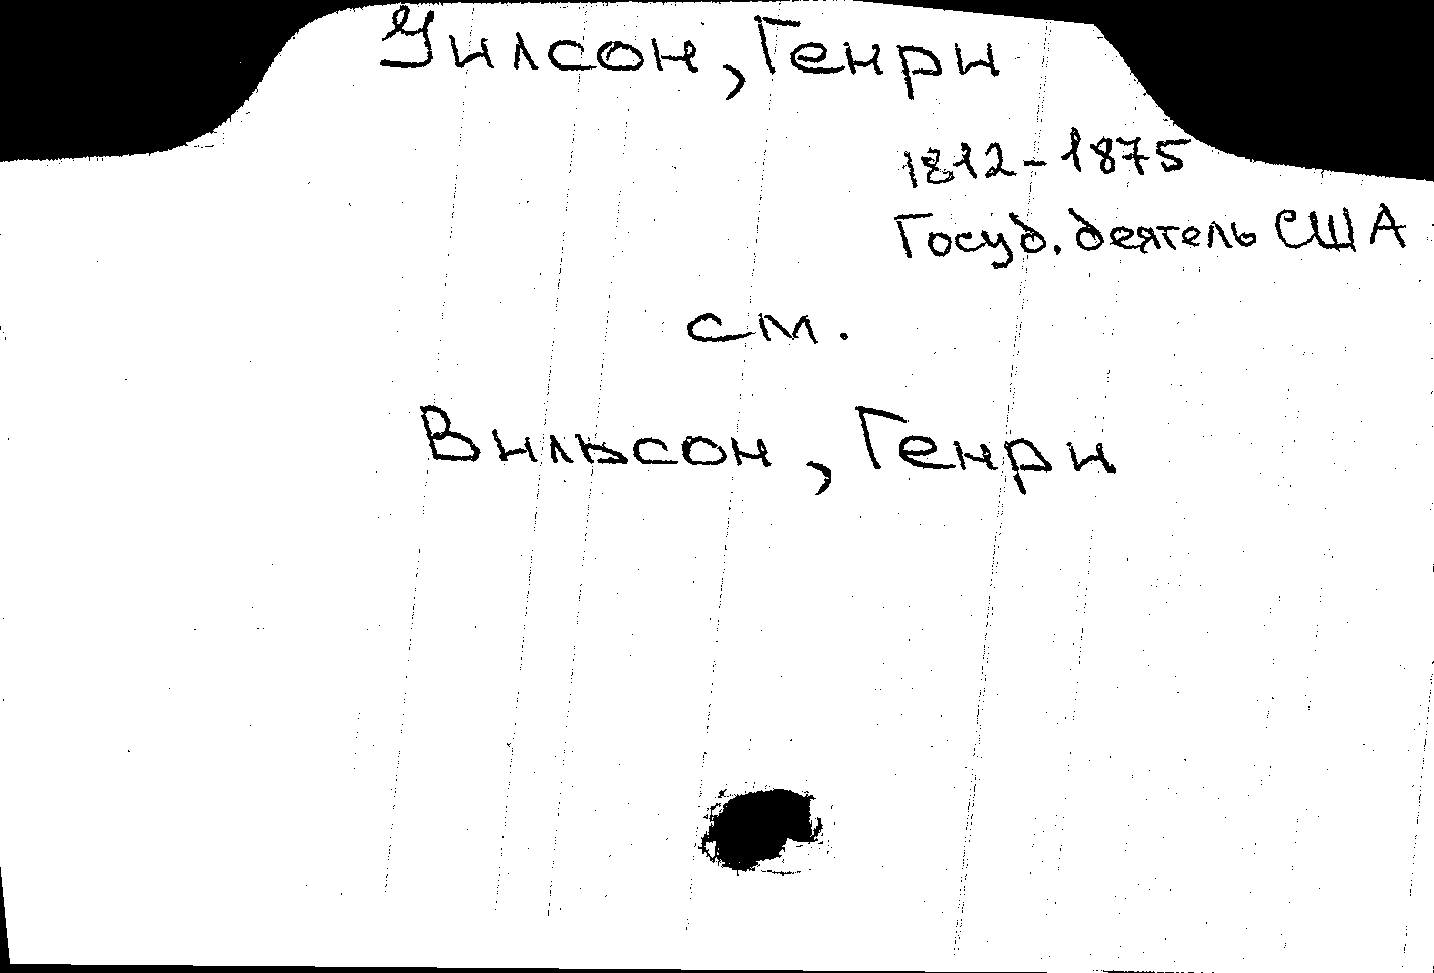 Уилсон, Генри
1812-1875
Госуд. деятель США
см.
Вильсон, Генри